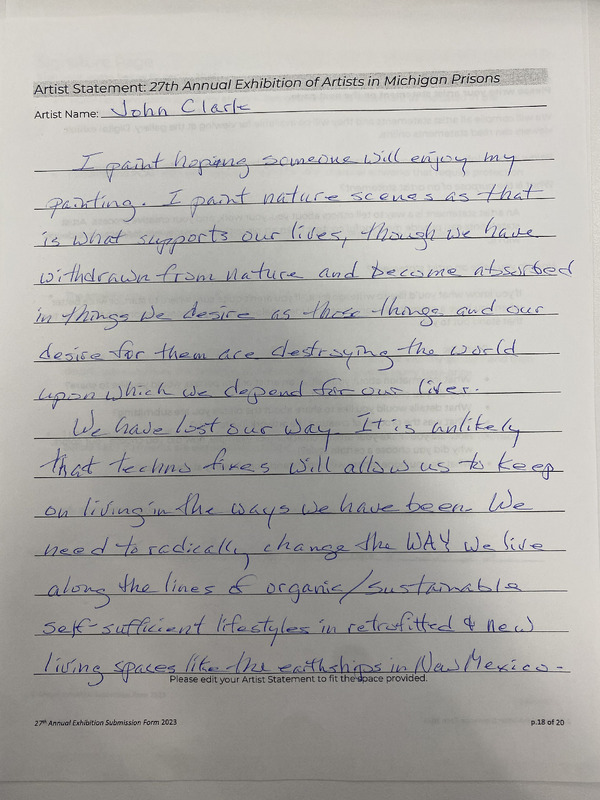 Artist Statement: 27th Annual Exhibition of Artists in Michigan Prisons
Artist Name: John Clark
I paint hoping someone will enjoy my
painting. I paint nature scenes as that
is what supports our lives, though we have
withdrawn from nature and become absorbed
in things we desire as those things and our
desire for them are destroying the world
upon which we depend for our lives.
We have lost our way. It is unlikely
that techno fixes will allow us to keep
on living in the ways we have been. We
need to radically change the WAY we live
along the lines of organic/sustainable
self-sufficient lifestyles in retrofitted & new
living spaces like the earthships in New Mexico-
Please edit your Artist Statement to fit the space provided.
27th Annual Exhibition Submission Form 2023
p.18 of 20